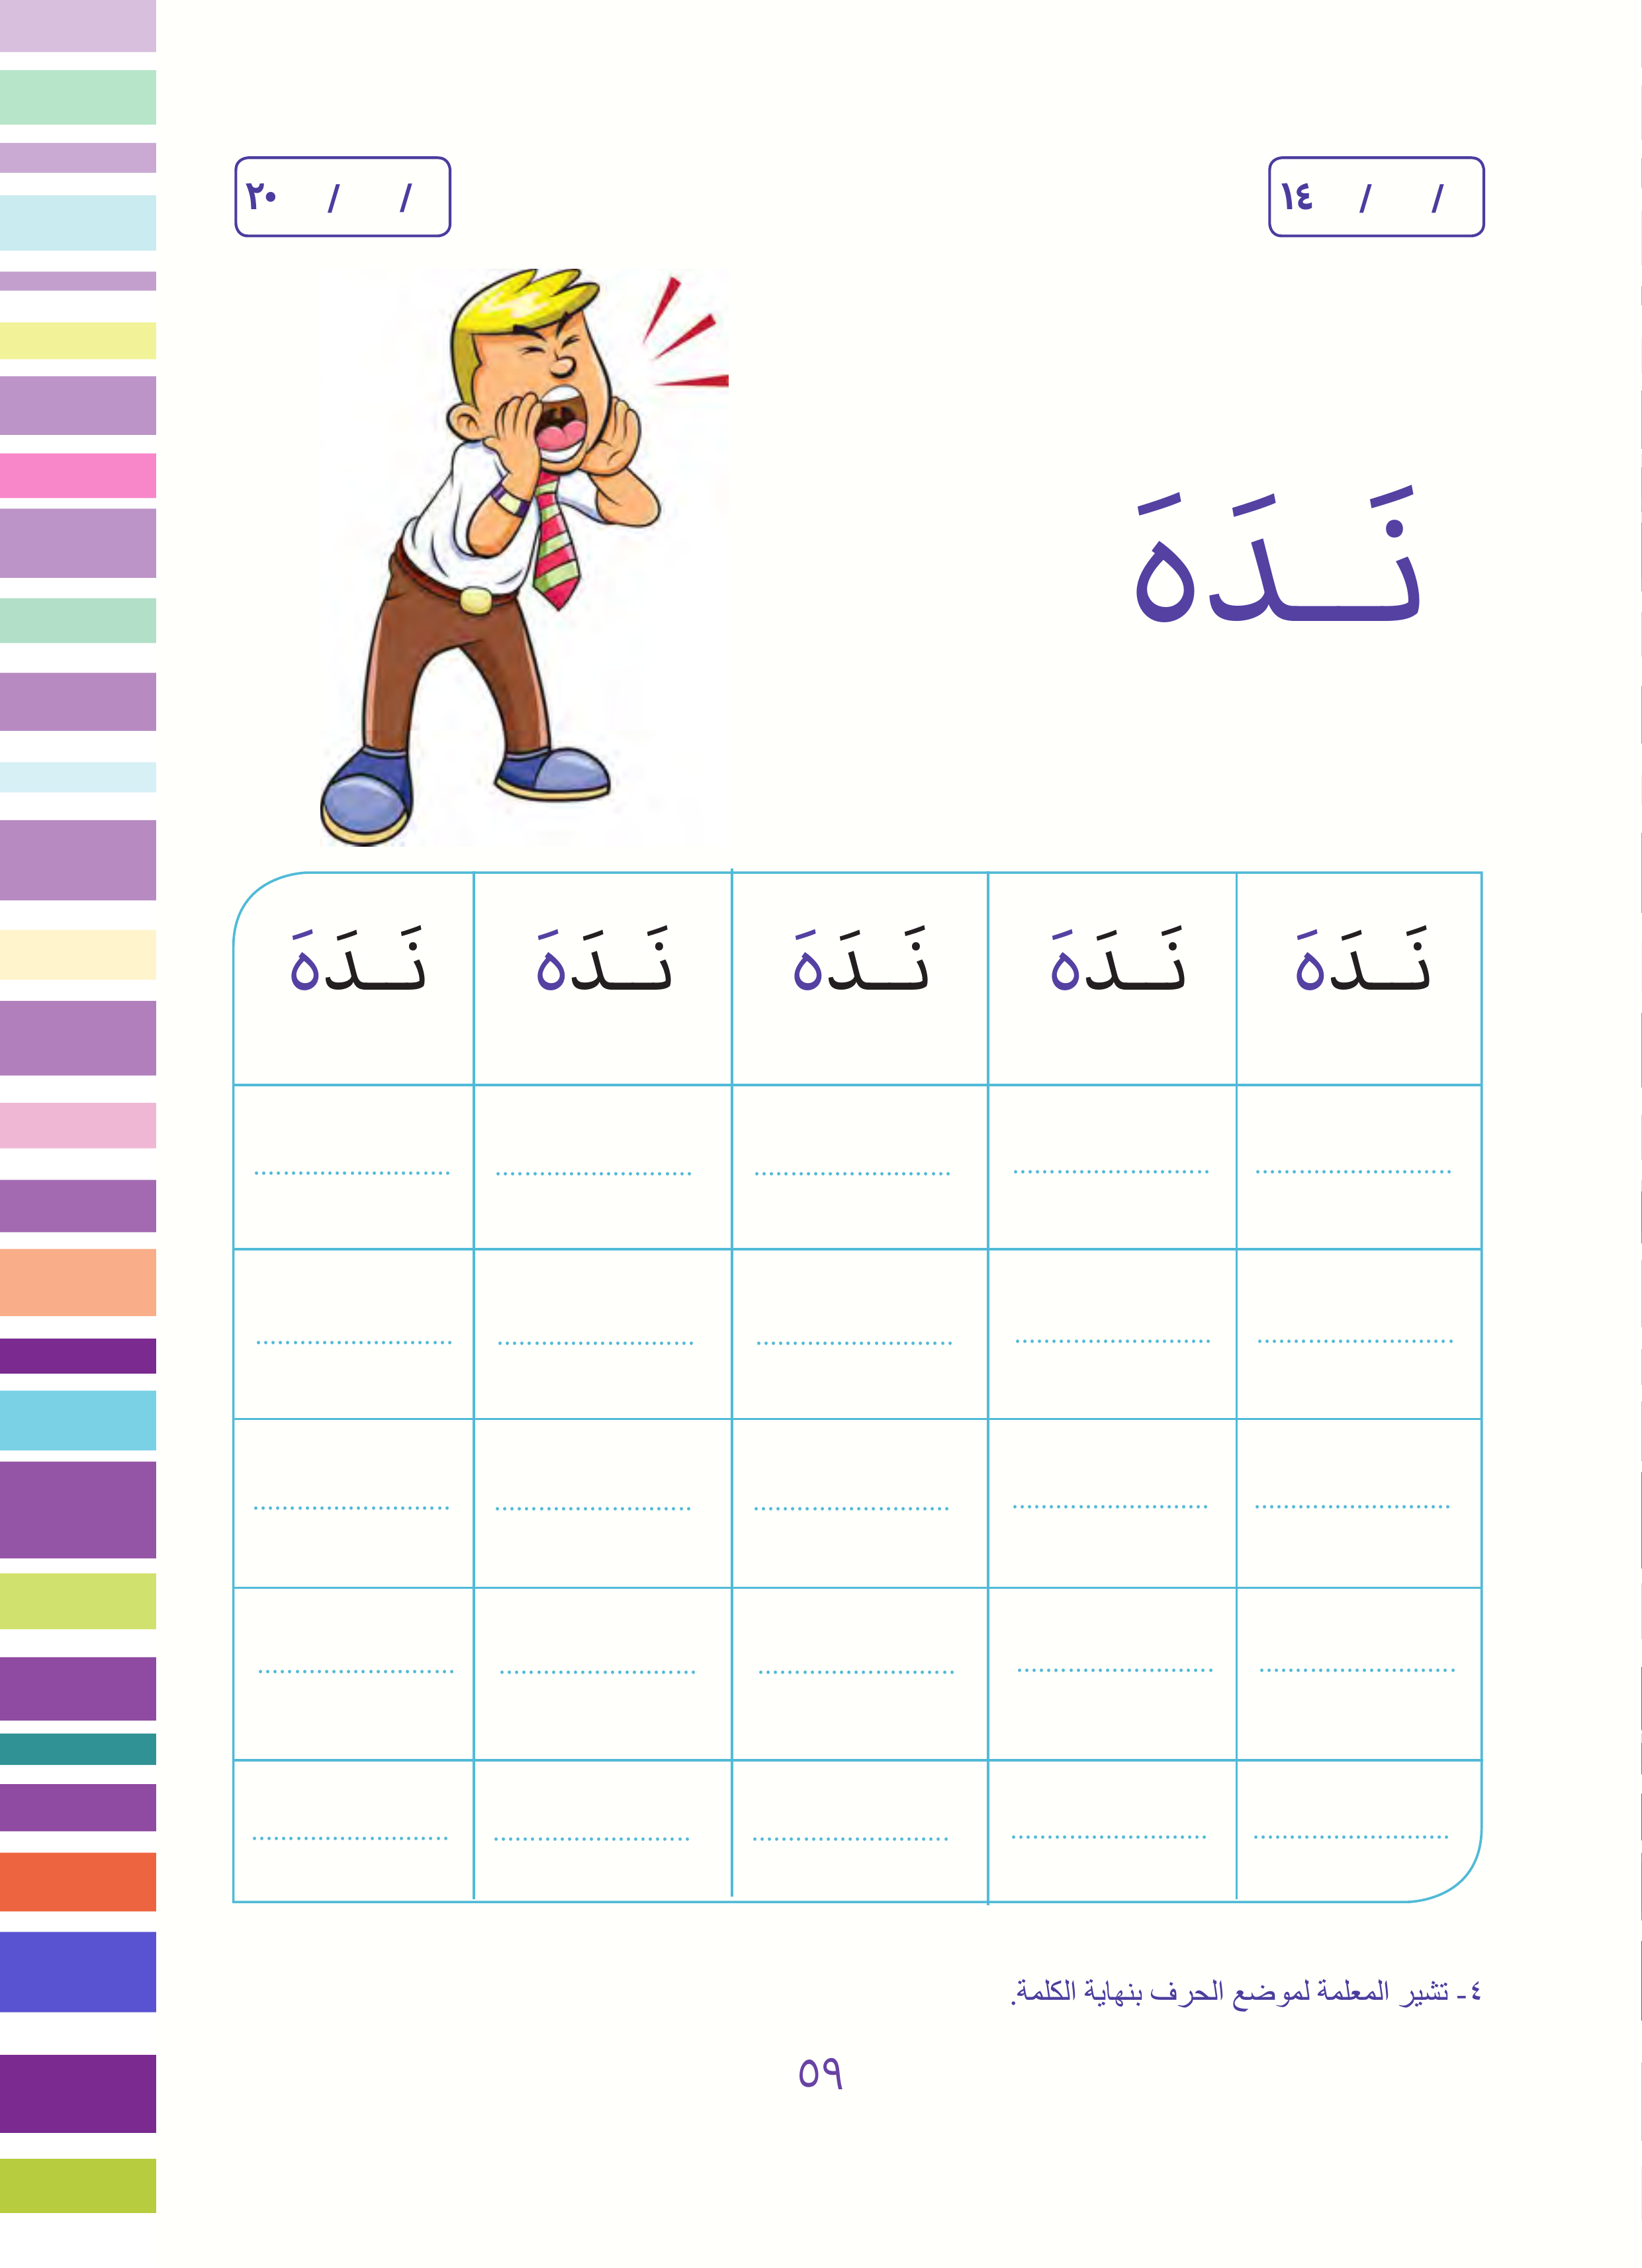 ١٤ / /
٢٠ / /
نَـدَهَ
نَـدَهَ نَـدَهَ نَـدَهَ نَـدَهَ نَـدَهَ
٤- تشير المعلمة لموضع الحرف بنهاية الكلمة.
٥٩